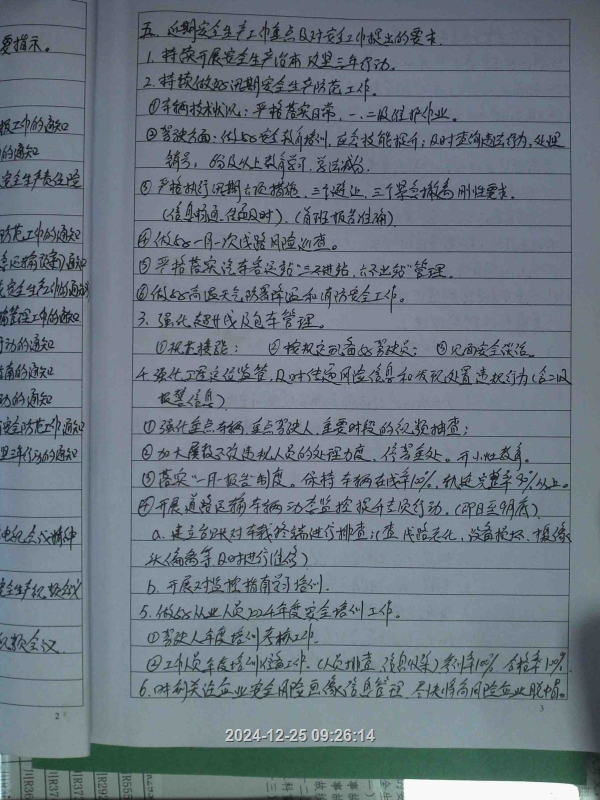 要指示。
工作的通知
的通知
安全生产责任险
防范工作的通知
安全生产工作的通知
管理工作的通知
行动的通知
指南的通知
动的通知
安全防范工作通知
三年行动的通知
会议精神
安全生产视频会议
视频会议
2
五、近期安全生产工作重点及对安全工作提出的要求
1. 持续开展安全生产治本攻坚三年行动。
2. 持续做好汛期安全生产防范工作。
①车辆技术状况:严格落实日常,一、二级维护作业。
②驾驶员方面:做好安全教育培训,应急技能提升;及时查询违法行为,处理
销号,
③严格执行汛期六项措施,三个避让,三个紧急撤离刚性要求。
(信息畅通、传递及时)、(首班报告准确)
④做好一月一次线路风险巡查。
⑤严格落实汽车客运站“三不进站,六不出站”管理。
⑥做好高温天气防暑降温和消防安全工作。
3. 强化超长线及包车管理。
①执去接驳; ②按规定配备好驾驶员; ③见面安全谈话。
4. 强化卫星定位监管,及时传递风险信息和发现处置违规行为(含二级
报警信息)
①强化重点车辆、重点驾驶人、重要时段的视频抽查;
②加大屡教不改违规人员的处理力度,
③落实“一月一报告”制度。保持车辆在线率100%,轨迹完整率90%以上。
④开展道路运输车辆动态监控提升专项行动。(即日至9月底)
a. 建立台账对车载终端进行排查(查线路老化、设备损坏、摄像
头偏离等及时进行维修)
b. 开展对监控指南学习培训。
5. 做好从业人员2024年度安全培训工作。
①驾驶人年度培训考核工作。
②工作人员年度培训上传工作。(人员排查、信息收集)参训率100%、合格率100%
6. 时刻关注企业安全风险画像信息管理,尽快将高风险企业脱帽。
3
2024-12-25 09:26:14